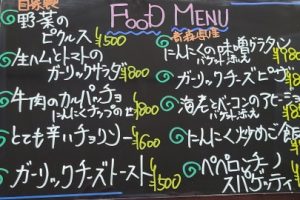 FOOD MENU
自家製
野菜の
ピクルス ¥500
生ハムとトマトの
ガーリックサラダ ¥800
牛肉のカルパッチョ
にんにくチップのせ ¥800
とても辛いチョリソー ¥600
ガーリックチーズトースト ¥500
にんにくの味噌グラタン
バゲット添え ¥800
ガーリックチーズピザ ¥800
海老とベーコンのアヒージョ
バゲット添え
にんにく炒めご飯
ペペロンチーノ
スパゲッティ